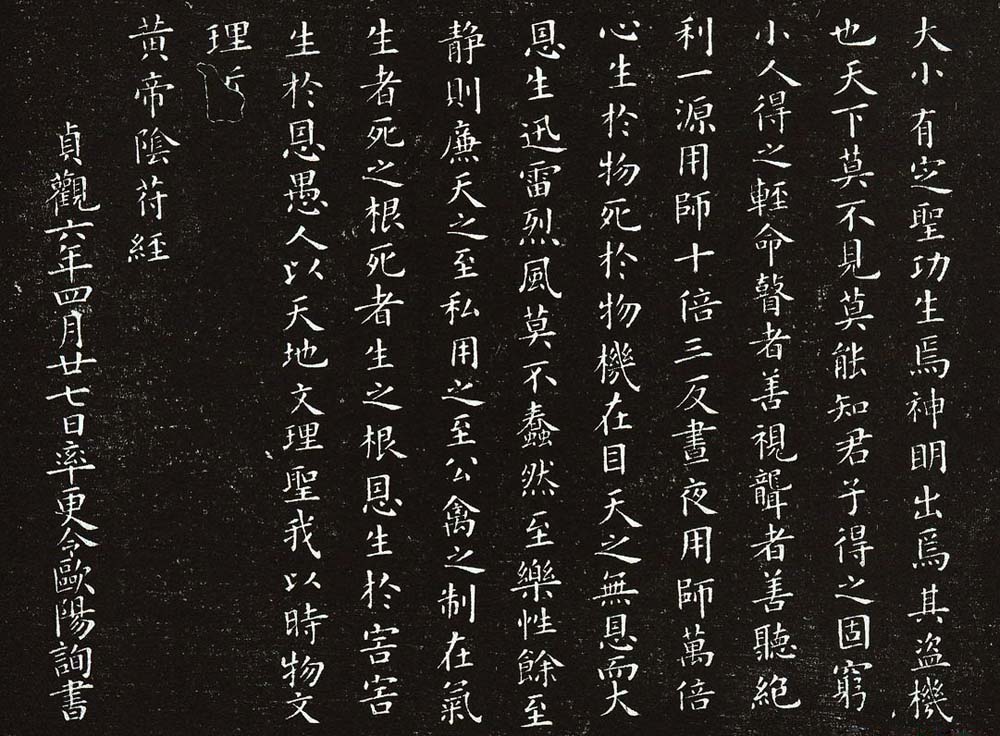 大小有定聖功生焉神明出焉其盜機
也天下莫不見莫能知君子得之固窮
小人得之輕命瞽者善視聾者善聽絶
利一源用師十倍三反晝夜用師萬倍
心生於物死於物機在目天之無恩而大
恩生迅雷烈風莫不蠢然至樂性餘至
静則廉天之至私用之至公禽之制在氣
生者死之根死者生之根恩生於害害
生於恩愚人以天地文理聖我以時物文
理
黄帝陰符經
貞觀六年四月廿七日率更令歐陽詢書